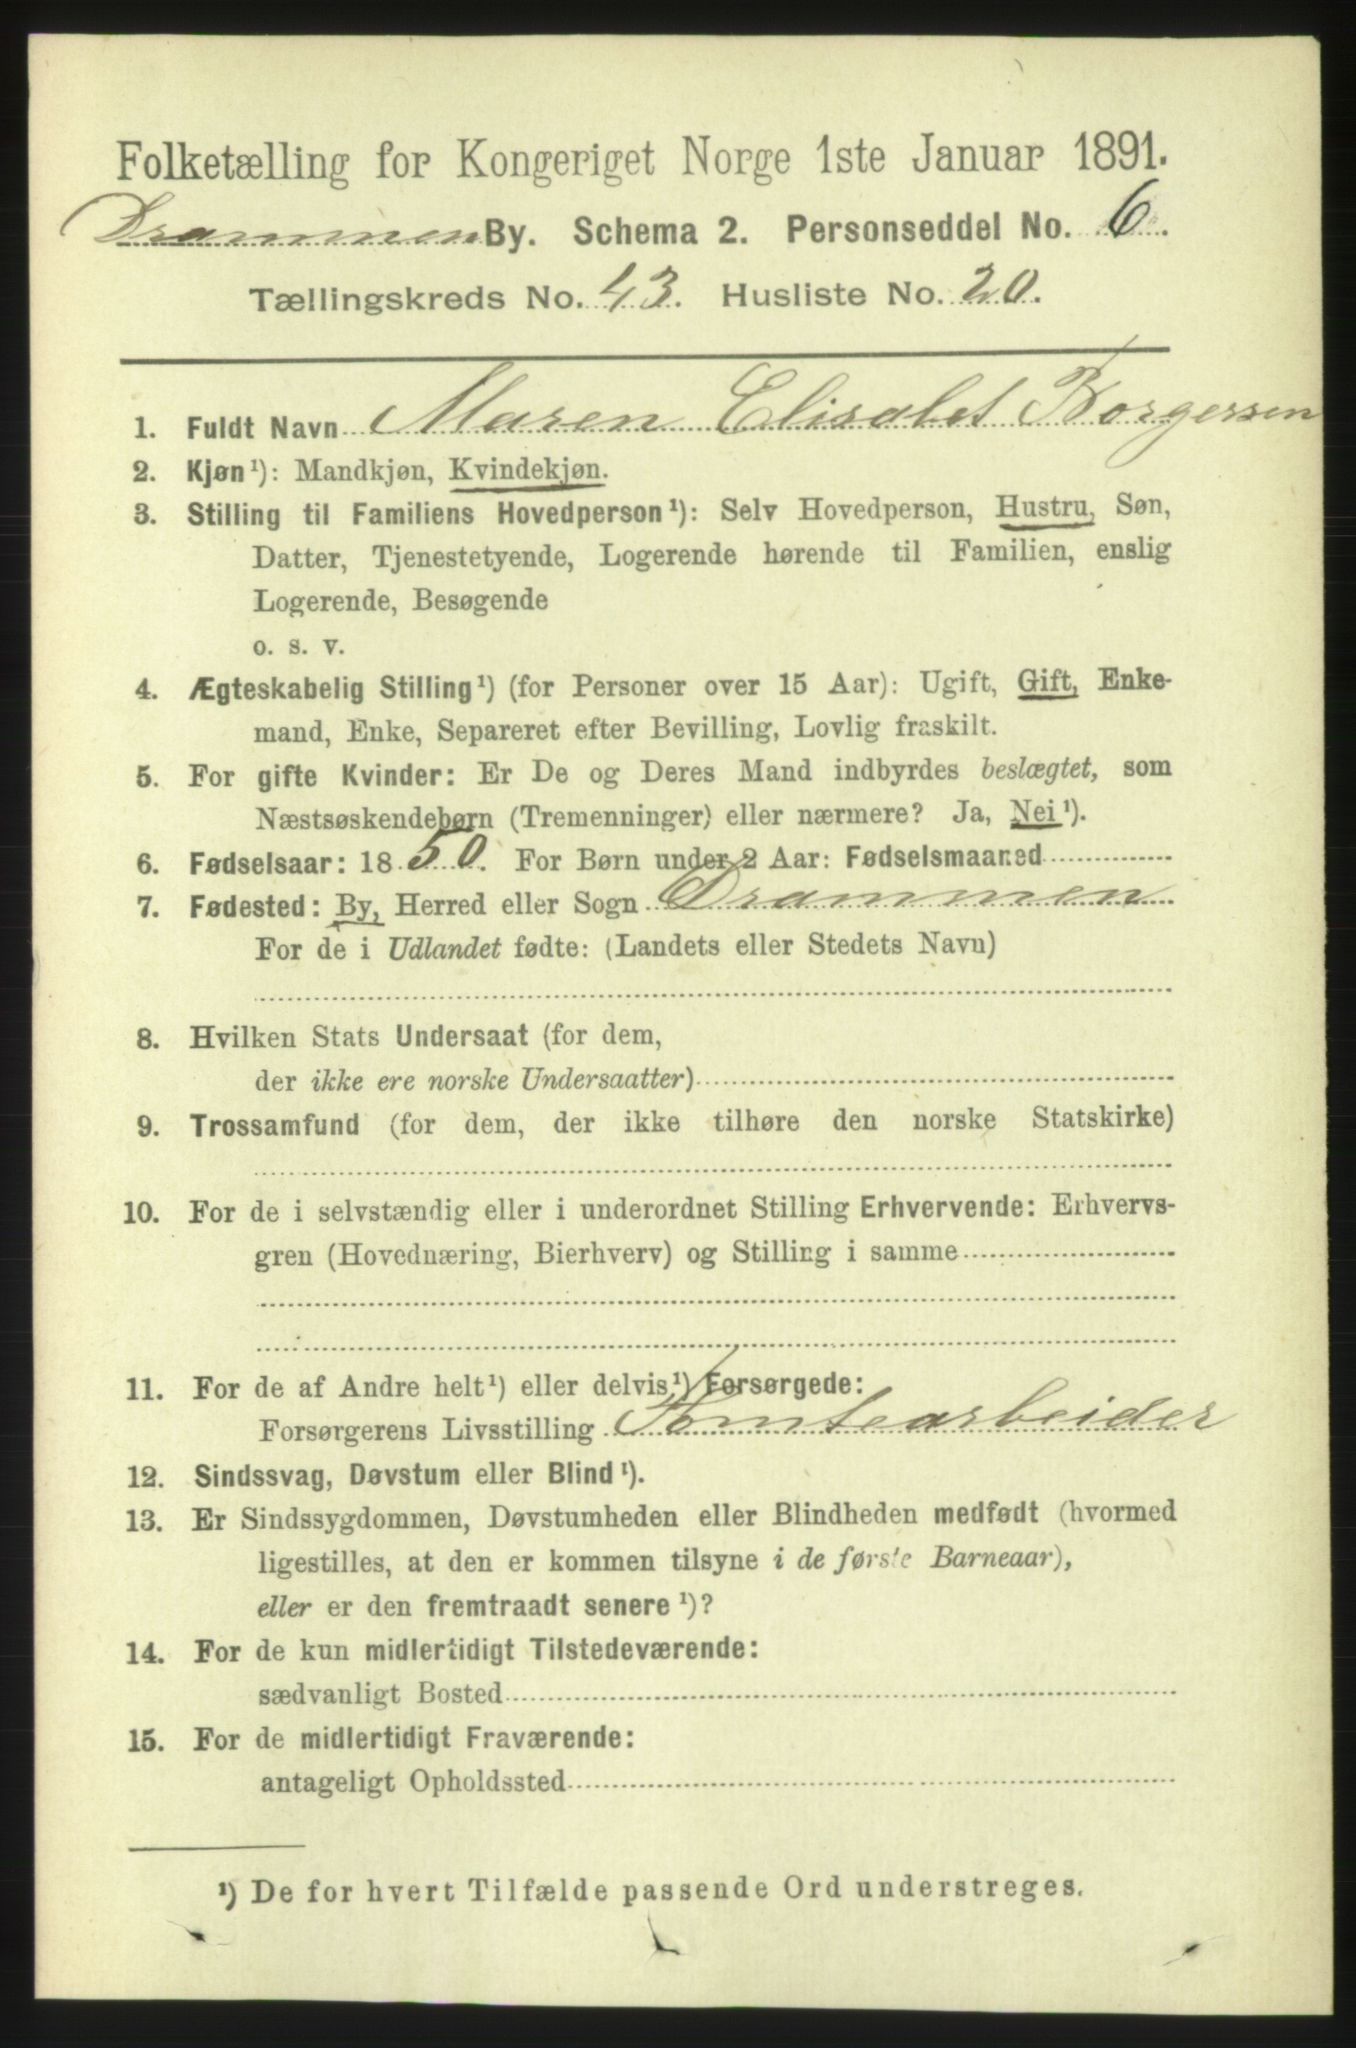 Folketælling for Kongeriget Norge 1ste Januar 1891.
Drammen By. Schema 2. Personseddel No. 6.
Tællingskreds No. 43. Husliste No. 20.
1. Fuldt Navn Maren Elisabet Borgersen
2. Kjøn¹): Mandkjøn, Kvindekjøn.
3. Stilling til Familiens Hovedperson¹): Selv Hovedperson, Hustru, Søn,
Datter, Tjenestetyende, Logerende hørende til Familien, enslig
Logerende, Besøgende
o. s. v.
4. Ægteskabelig Stilling¹) (for Personer over 15 Aar): Ugift, Gift, Enke-
mand, Enke, Separeret efter Bevilling, Lovlig fraskilt.
5. For gifte Kvinder: Er De og Deres Mand indbyrdes beslægtet, som
Næstsøskendebørn (Tremenninger) eller nærmere? Ja, Nei¹).
6. Fødselsaar: 1850. For Børn under 2 Aar: Fødselsmaaned
7. Fødested: By, Herred eller Sogn Drammen
For de i Udlandet fødte: (Landets eller Stedets Navn)
8. Hvilken Stats Undersaat (for dem,
der ikke ere norske Undersaatter)
9. Trossamfund (for dem, der ikke tilhøre den norske Statskirke)
10. For de i selvstændig eller i underordnet Stilling Erhvervende: Erhvervs-
gren (Hovednæring, Bierhverv) og Stilling i samme
11. For de af Andre helt¹) eller delvis¹) Forsørgede:
Forsørgerens Livsstilling Tomtearbeider
12. Sindssvag, Døvstum eller Blind¹).
13. Er Sindssygdommen, Døvstumheden eller Blindheden medfødt (hvormed
ligestilles, at den er kommen tilsyne i de første Barneaar),
eller er den fremtraadt senere¹)?
14. For de kun midlertidigt Tilstedeværende:
sædvanligt Bosted
15. For de midlertidigt Fraværende:
antageligt Opholdssted
¹) De for hvert Tilfælde passende Ord understreges.